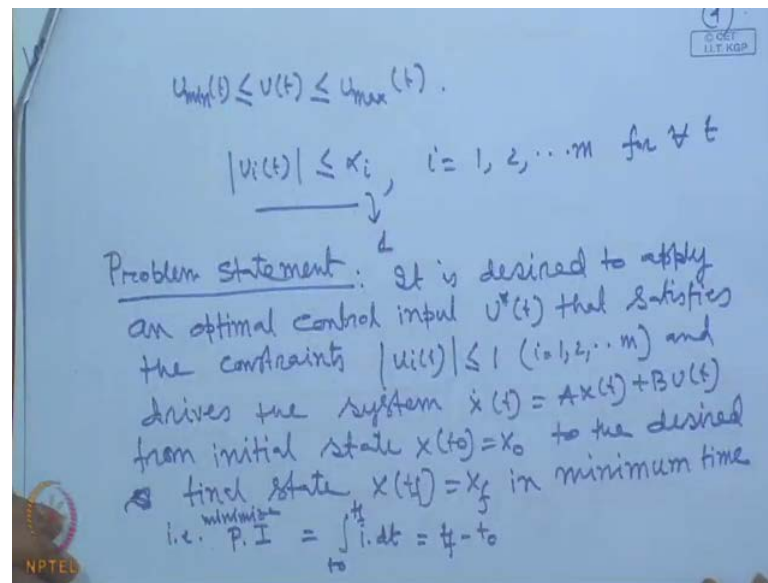 (1)
© CET
I.I.T. KGP
Umin(t) ≤ U(t) ≤ Umax(t).
|Ui(t)| ≤ αi, i = 1, 2, ... m for ∀ t
Problem Statement: It is desired to apply
an optimal control input U*(t) that satisfies
the constraints |ui(t)| ≤ 1 (i=1,2,..m) and
drives the system ẋ(t) = Ax(t)+BU(t)
from initial state x(t0)=x0 to the desired
final state x(tf) = xf in minimum time
i.e. minimize P.I = ∫t0^tf 1.dt = tf - t0
NPTEL